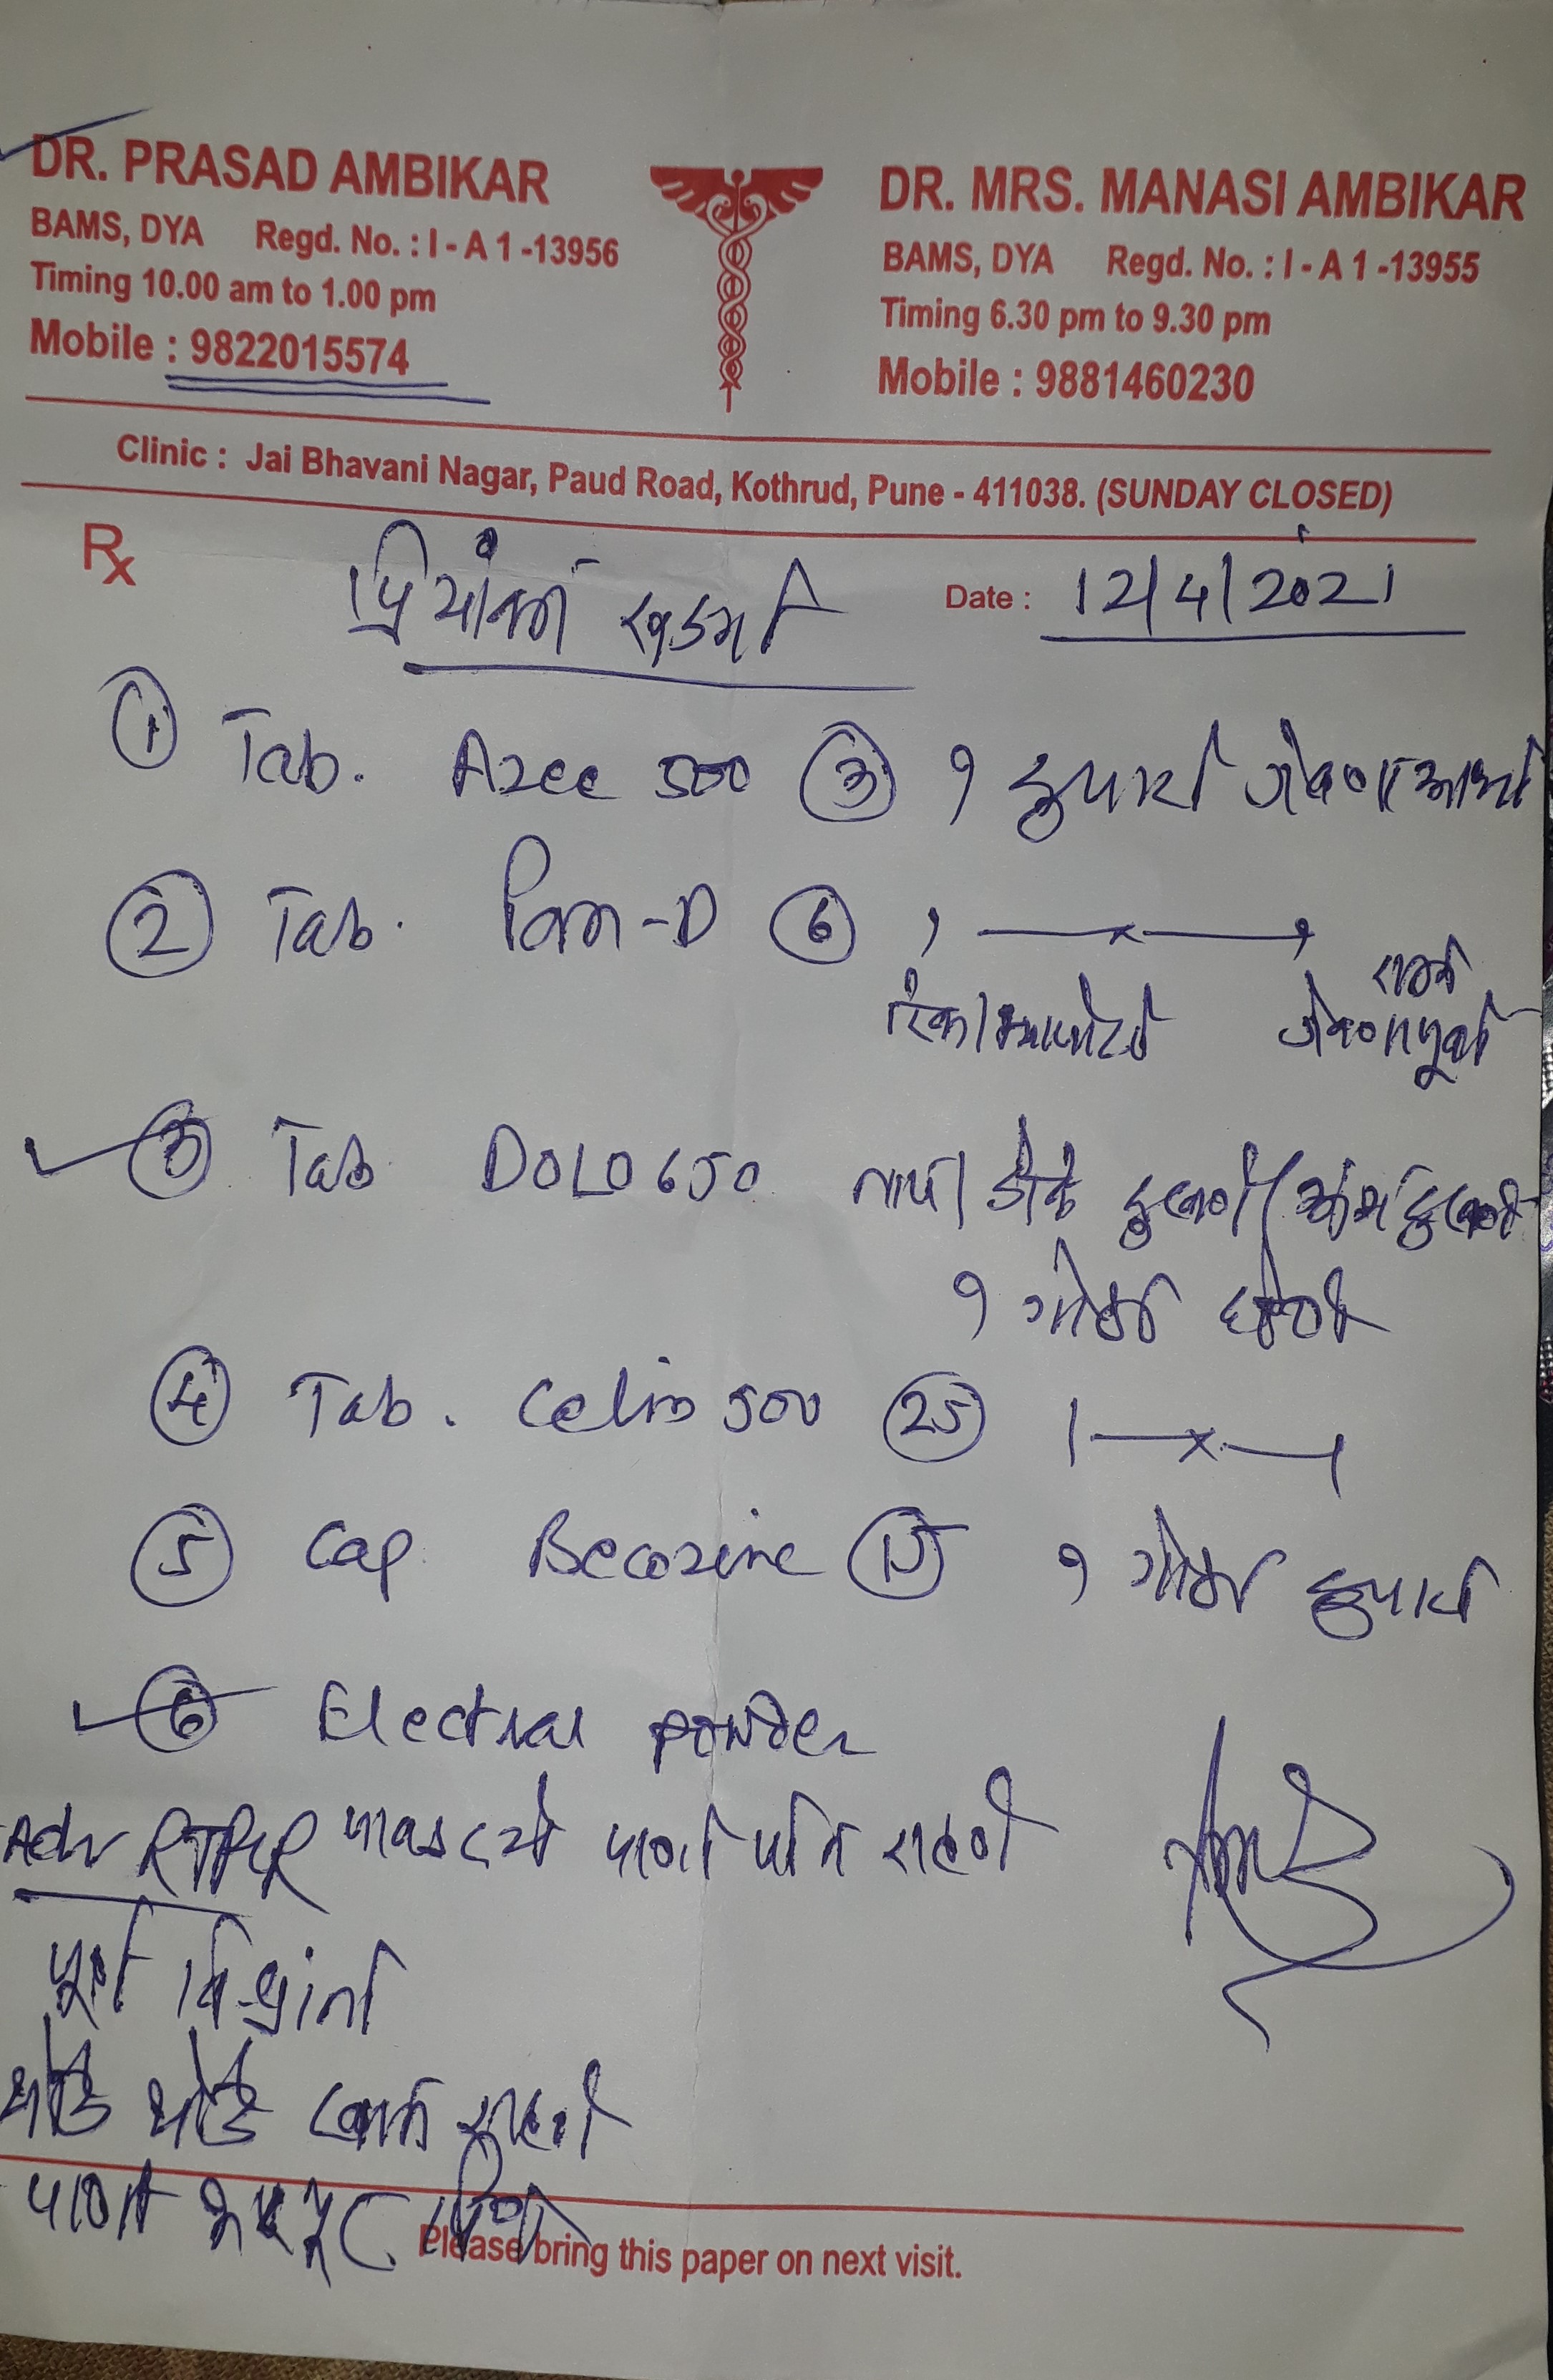 DR. PRASAD AMBIKAR
BAMS, DYA Regd. No. : I - A 1 -13956
Timing 10.00 am to 1.00 pm
Mobile : 9822015574
DR. MRS. MANASI AMBIKAR
BAMS, DYA Regd. No. : I - A 1 -13955
Timing 6.30 pm to 9.30 pm
Mobile : 9881460230
Clinic : Jai Bhavani Nagar, Paud Road, Kothrud, Pune - 411038. (SUNDAY CLOSED)
Rx
प्रियांका Date : 12/4/2021
① Tab. Azee 500 ③ १ दुपारी
② Tab. Pan-D ⑥ १ —×— १
रात्री
रिकाम्यापोटी जेवणापूर्वी
③ Tab DOLO 650 ताप / डोके दुखणे / अंग दुखणे
१ गोळी घेणे
④ Tab. Celin 500 ㉕ 1 —×— 1
⑤ Cap. Becozine ⑮ १ गोळी दुपारी
⑥ Electral powder
Adv RTPCR पाणी पीत राहणे
पूर्ण विश्रांती
थोडे थोडे खात राहणे
पाणी भरपूर पिणे
Please bring this paper on next visit.